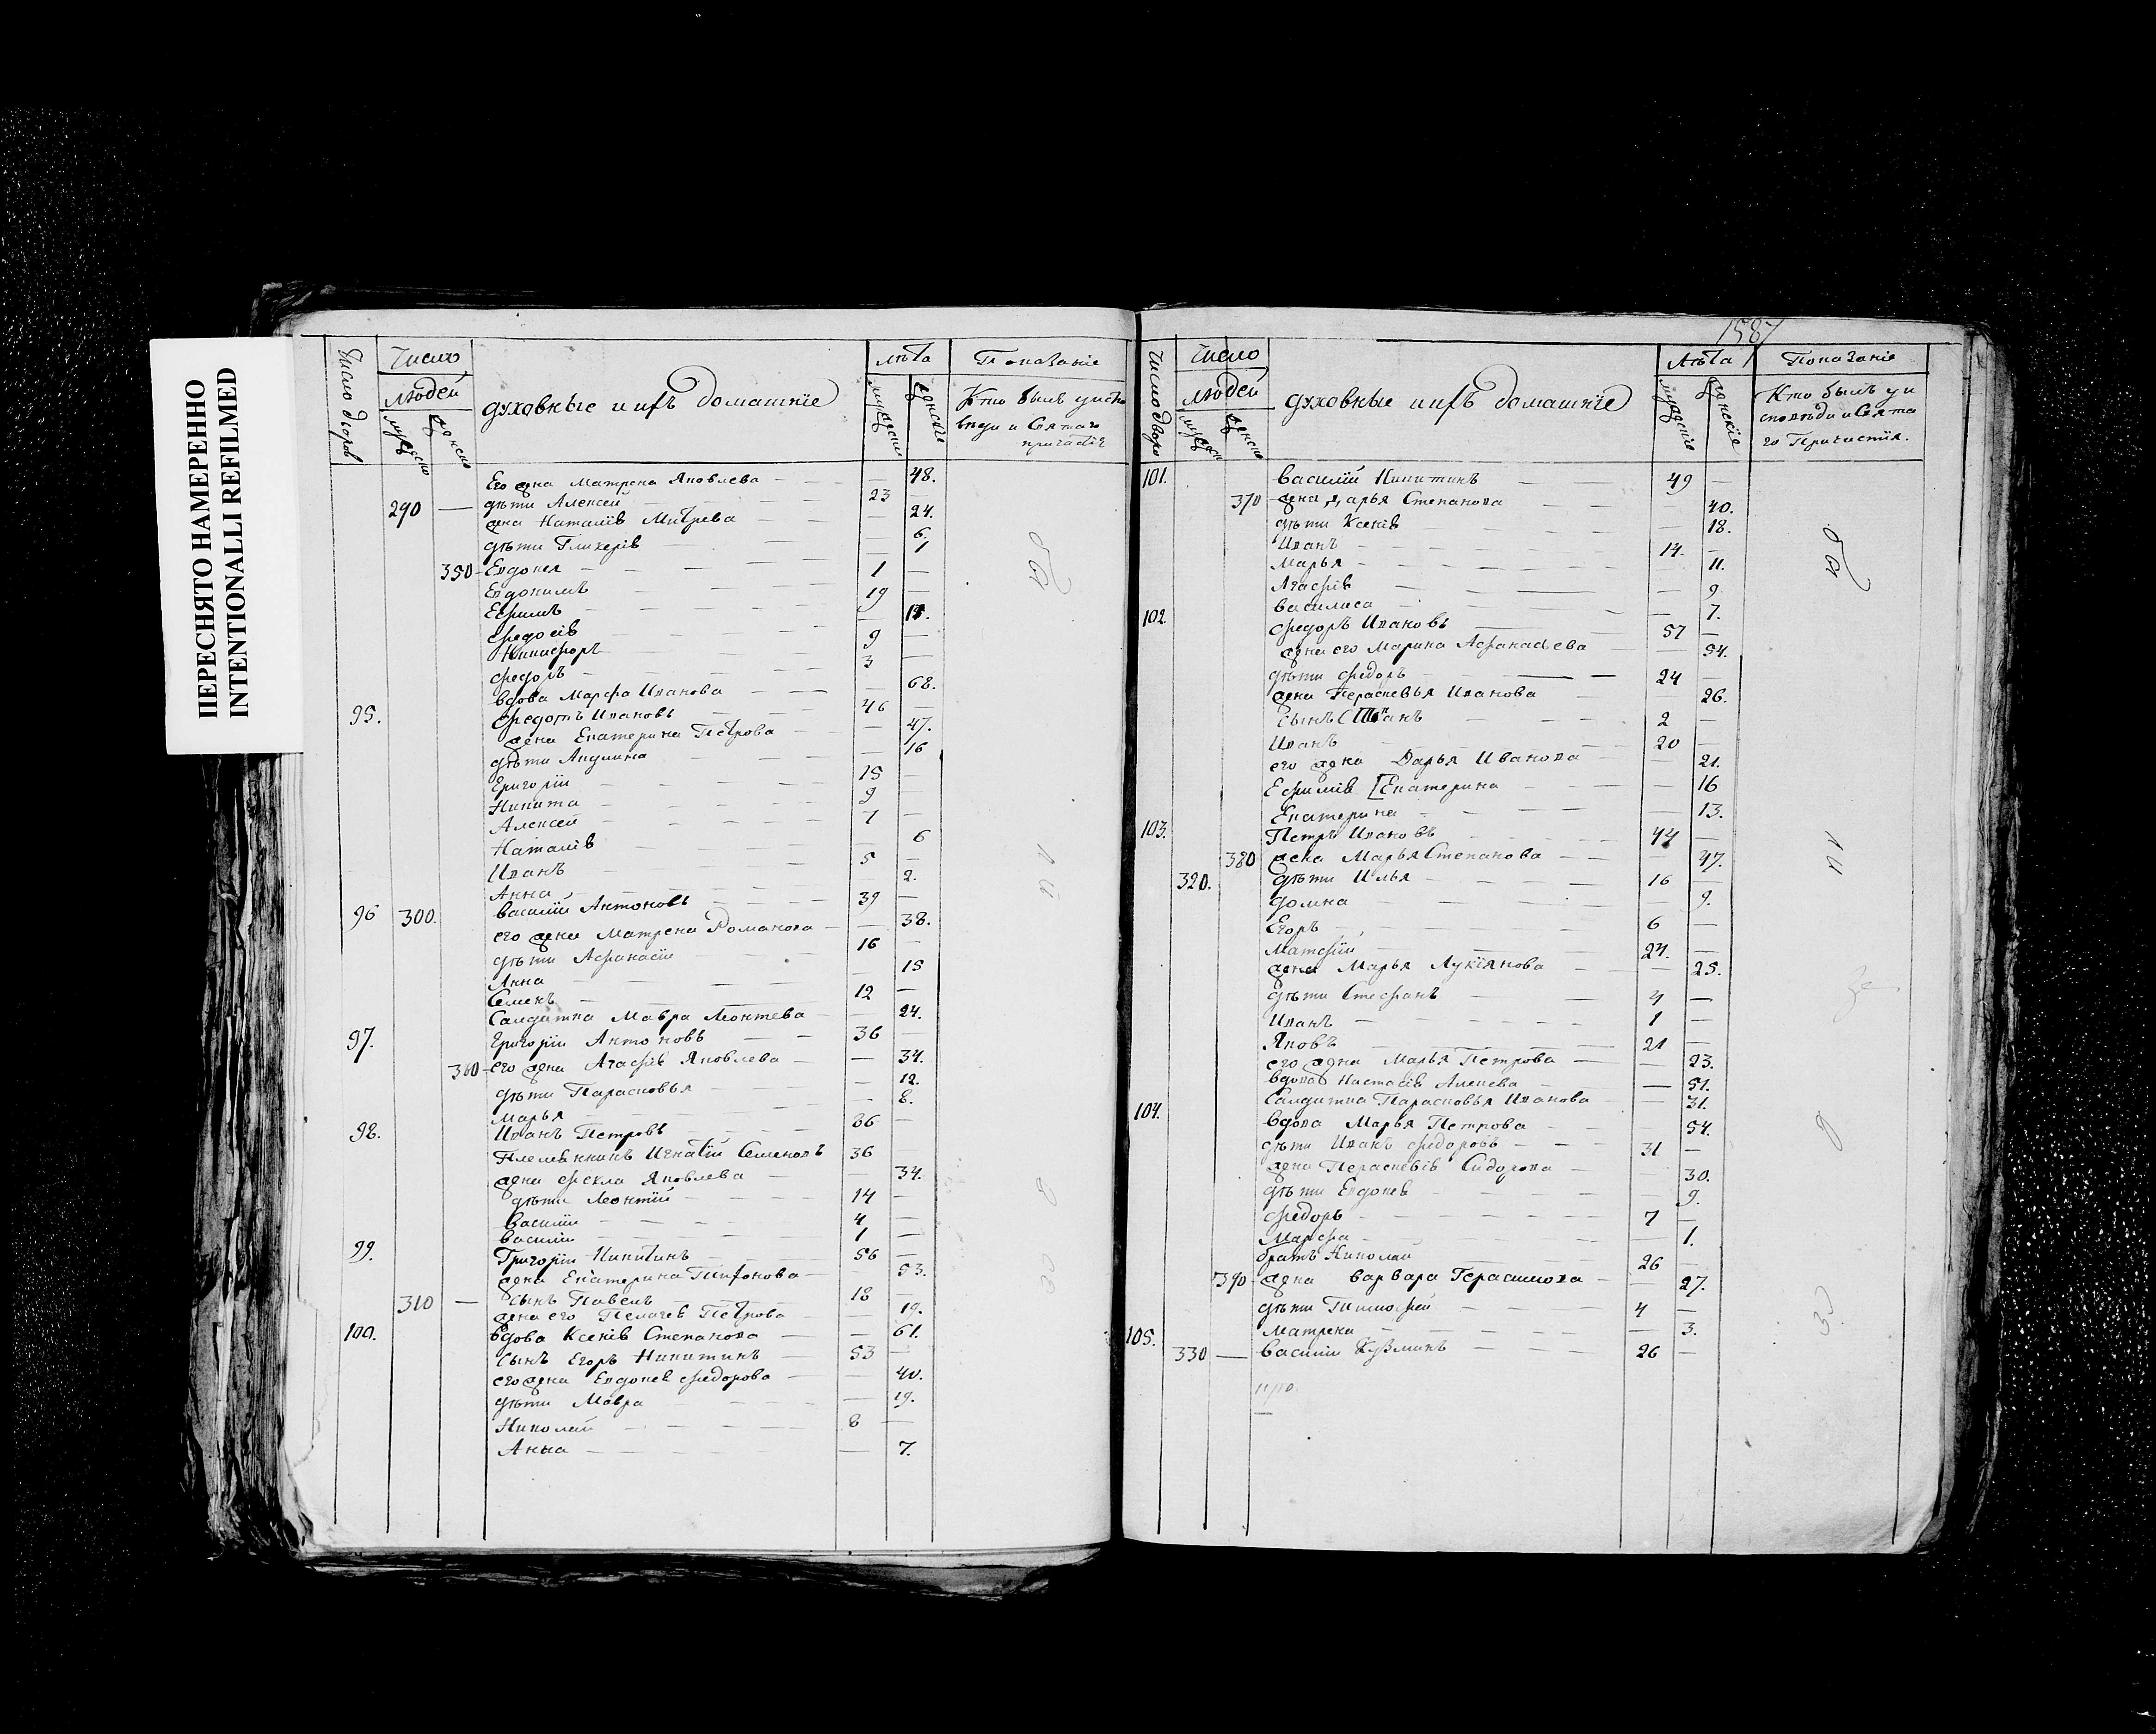 ПЕРЕСНЯТО НАМЕРЕННО
INTENTIONALLI REFILMED
Число дворов
Число
людей
мужеско
женско
духовные и ихъ домашніе
лѣта
мужески
женские
Показаніе
Кто былъ у испо
веди и Святаго
причастіе
Его жена Матрена Яковлева — 48.
290 — дѣти Алексей 23 —
жена Наталія Митрева — 24.
дѣти Гликерія — 6.
350 Евдокея — 1
Евдокимъ 1 —
Ефимъ 19 —
Федосія —
Никифоръ 9 —
Федоръ 3 —
вдова Марфа Иванова — 68.
95. Федотъ Ивановъ 46 —
жена Екатерина Петрова — 47.
дѣти Акулина — 16
Григорій 15 —
Никита 9 —
Алексей 7 —
Наталія — 6
Иванъ 5 —
Анна — 2.
96 300. василій Антоновъ 39 —
его жена Матрена Романова — 38.
дѣти Афанасіи 16 —
Анна — 15
Семенъ 12 —
Салдатка Мавра Леонтева — 24.
97. Григоріи Антоновъ 36 —
360 его жена Агафія Яковлева — 34.
дѣти Парасковья — 12.
марья — 8.
98. Иванъ Петровъ 36 —
Племянникъ Игнатій Семеновъ 36
жена Фекла Яковлева — 34.
дѣти Леонтій 14 —
василіи 4 —
василіи 1 —
99. Григоріи Никитинъ 56 —
жена Екатерина Тихонова — 53.
310 — сынъ Павелъ 18 —
жена его Пелагея Петрова — 19.
100. вдова Ксенія Степанова — 61.
сынъ Егоръ Никитинъ 53 —
его жена Евдокея Федорова — 40.
дѣти Мавра — 19.
Николай 8 —
Анна — 7.
1587
Число дворо
Число
людей
духовные и ихъ домашніе
Лѣта
мужескіе
женскіе
Показаніе
Кто былъ у и
сповѣди и Свята
го Причастія.
101. василій Никитинъ 49 —
370 жена Дарья Степанова — 40.
дѣти Ксенія — 18.
Иванъ 14. —
Марья — 11.
Агафія — 9
василиса — 7.
102. Федоръ Ивановъ 57 —
жена его Марина Афанасьева — 54.
дѣти Федоръ 24 —
жена Перасковья Иванова — 26.
сынъ 2 —
Иванъ 20 —
его жена Дарья Иванова — 21.
Ефимія [Екатерина — 16
Екатерина — 13.
103. Петръ Ивановъ 47 —
380 жена Марья Степанова — 47.
320. дѣти Илья 16 —
домна — 9.
Егоръ 6 —
Матфій 24. —
жена Марья Лукіянова — 25.
дѣти Стефанъ 4 —
Иванъ 1 —
Яковъ 21 —
его жена Марья Петрова — 23.
вдова Настасія Алексева — 51.
Салдатка Парасковья Иванова — 31.
104. вдова Марья Петрова — 54.
дѣти Иванъ Федоровъ 31 —
жена Пераскевія Сидорова — 30.
дѣти Евдокея — 9.
Федоръ 7 —
Марфа — 1.
братъ Николай 26 —
390 жена варвара Герасимова — 27.
дѣти Тимофей 4 —
матрена — 3.
105. 330 — василіи Кузминъ 26 —